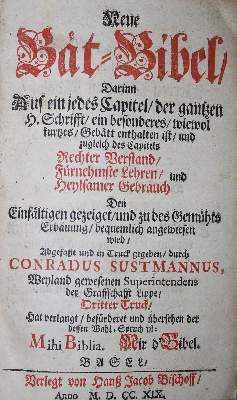 Neue
Bät-Bibel/
Darinn
Auf ein jedes Capitel/ der gantzen
H. Schrifft/ ein besonderes/ wiewol
kurtzes/ Gebätt enthalten ist/ und
zugleich des Capitels
Rechter Verstand/
Fürnehmste Lehren/ und
Heylsamer Gebrauch
Den
Einfältigen gezeiget/ und zu des Gemühts
Erbauung/ bequemlich angewiesen
wird/
Abgefaßt und in Truck gegeben/ durch
CONRADUS SUSTMANNUS,
Weyland gewesenen Superintendens
der Graffschafft Lippe/
Dritter Truck/
Hat verlangt/ befürderet und übersehen der
dessen Wahl-Spruch ist:
Mihi Biblia. Mir d'Bibel.
BASEL/
Verlegt von Hanß Jacob Bischoff/
Anno M. D. CC. XIX.